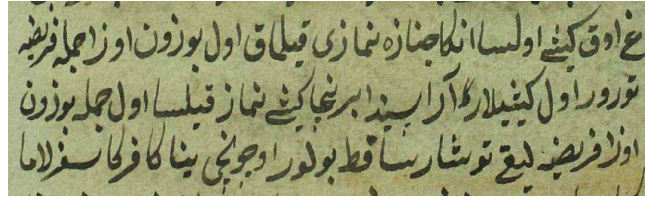 غ اوق کیشی اولسا انکا جنازه نمازی قیلماق اول بوزون اوزا جمله فریضه
تورور اول کیشیلارکا آراسیندا برنجا کیشی نماز قیلسا اول جمله بوزون
اوزا فریضه لیغی توشار ساقط بولور اوچونجی ینا کافرکا سفرلاما